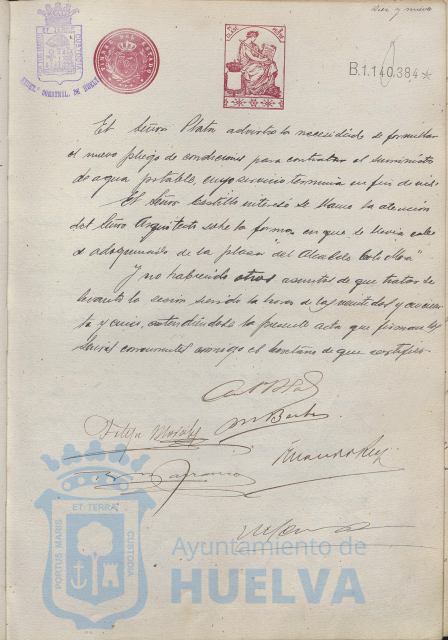 Diez y nueve
PORTUS MARIS ET TERRÆ CUSTODIA
EXCMO. AYUNT. CONSTNAL. DE HUELVA
TIMBRE DEL ESTADO
B.1.140.384*
El Señor Plata advirtió la necesidad de formular
el nuevo pliego de condiciones para contratar el suministro
de agua potable, cuyo servicio termina en fin de
El Señor Castillo interesó se llame la atención
del Señor Arquitecto sobre la forma en que se lleva a cabo
el adoquinado de la plaza del Alcalde Coto Mora"
Y no habiendo otros asuntos de que tratar se
levantó la sesión siendo la hora de las veintidós y cincuen
ta y cinco, extendiéndose la presente acta que firman los
Señores concurrentes conmigo el Secretario de que certifico.
Felipe Morales
PORTUS MARIS ET TERRÆ CUSTODIA
Ayuntamiento de
HUELVA